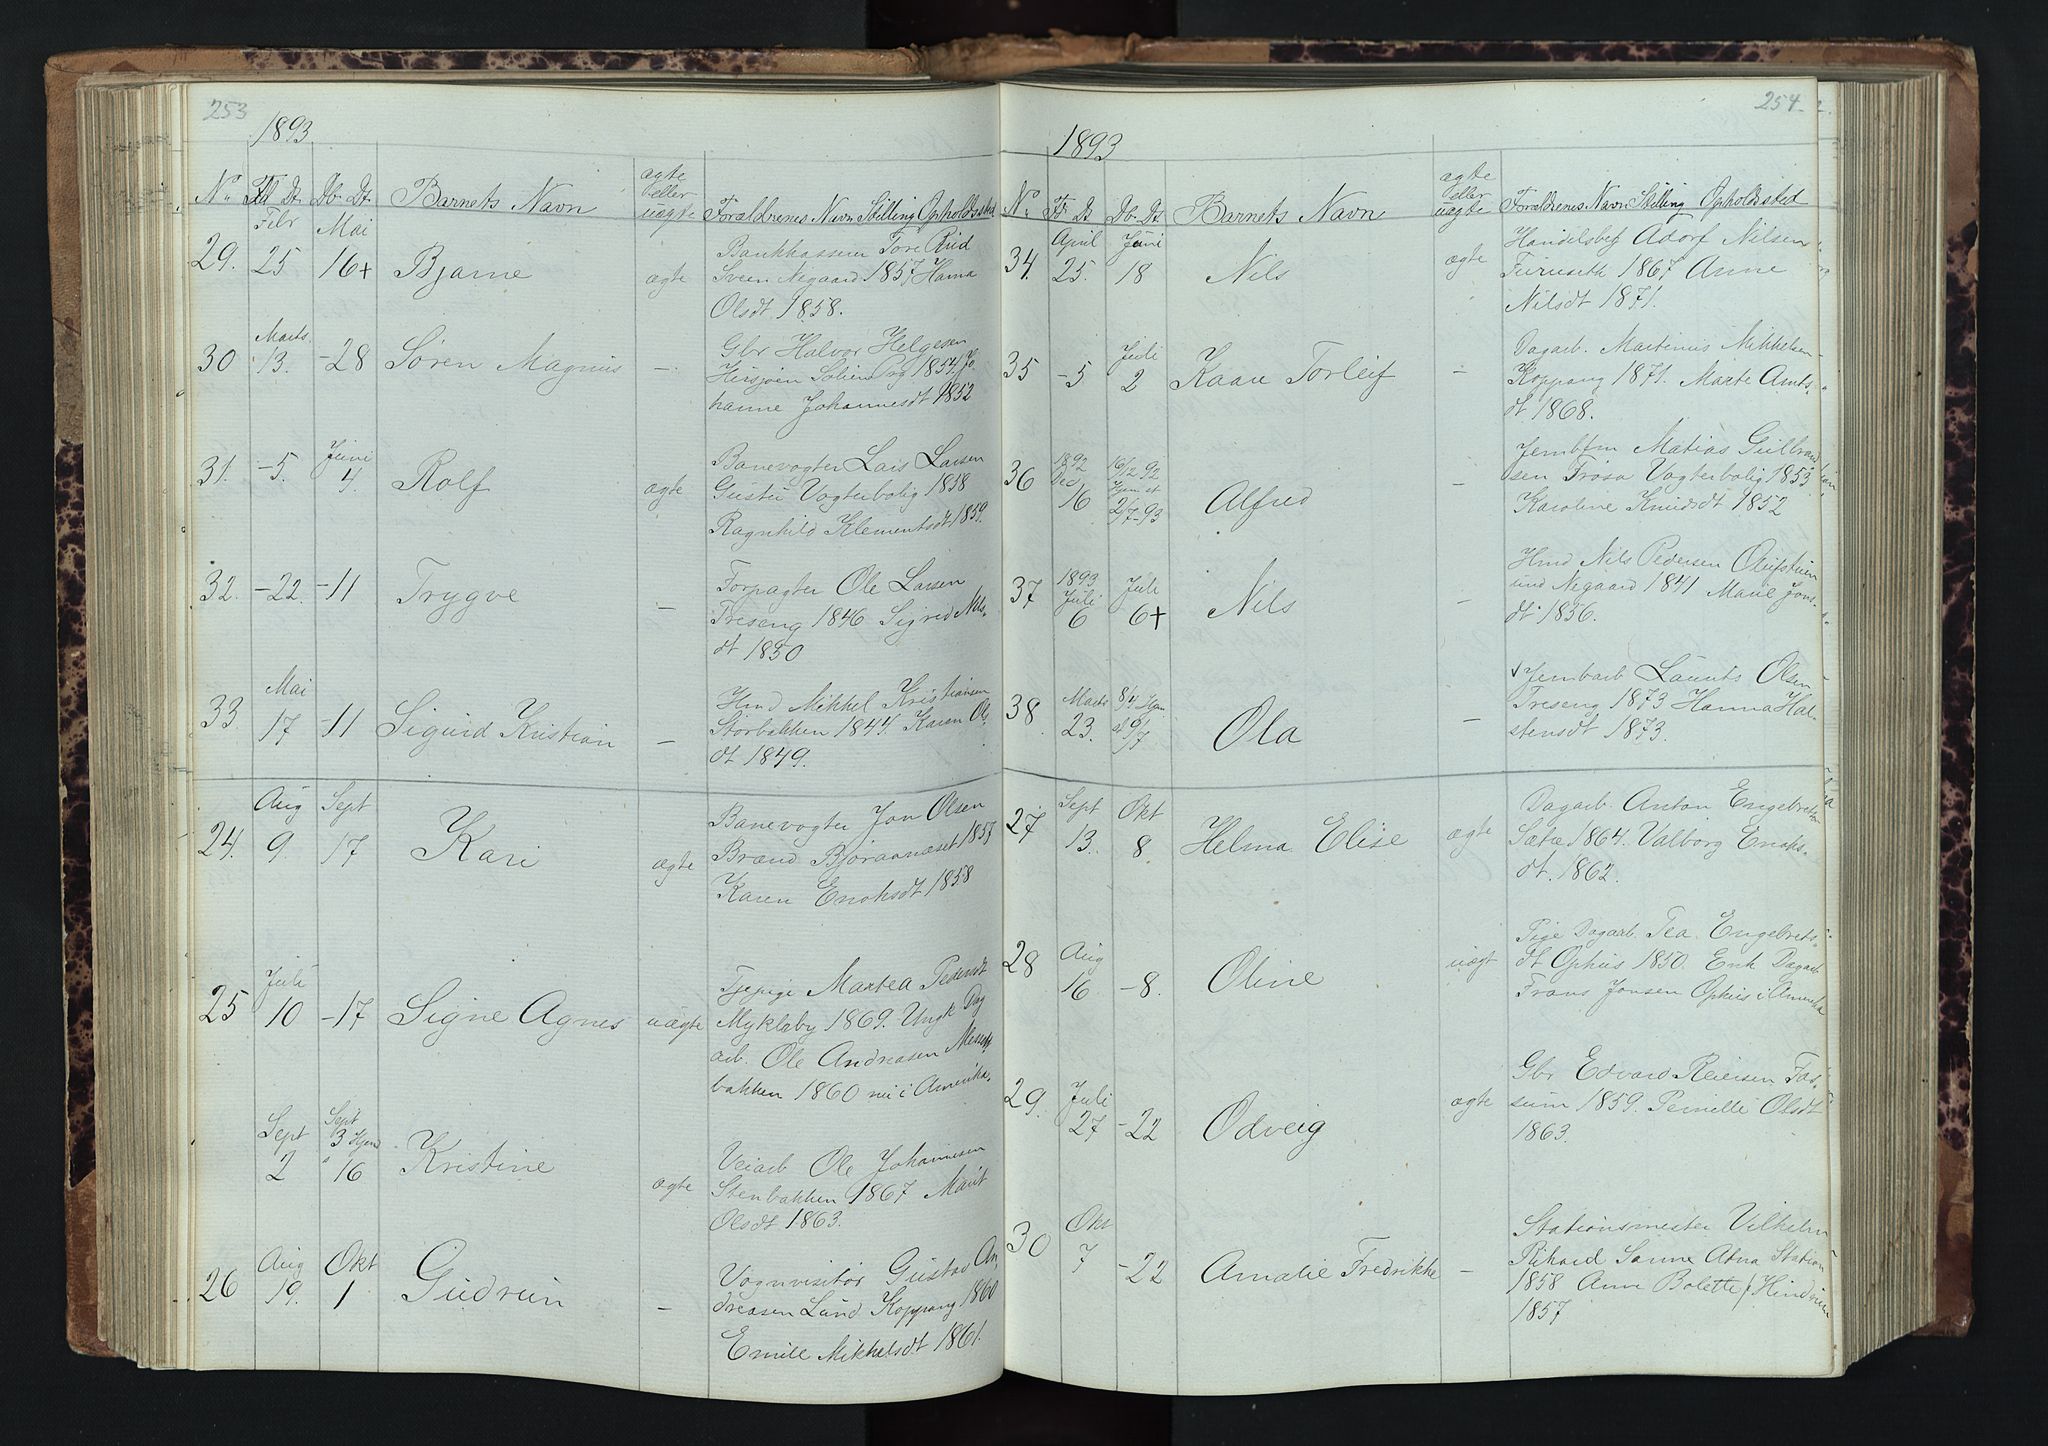 253
1893
No Fd Dt. Db. Dt. Barnets Navn ægte eller uægte Forældrenes Navn Stilling Opholdssted
29. Febr 25 Mai 16+ Bjarne ægte Bankkasserer Tore Ruud
Sven Negaard 1857 Hanna
Olsdt 1858.
30 Marts. 13. -28 Søren Magnus - Gbr Halvor Helgesen
Hirsjøen Sollien 1854. Jo
hanne Johannesdt 1852
31. -5. Juni 4. Rolf ægte Banevogter Lars Larsen
Gustu Vogterbolig 1858
Ragnhild Klementsdt 1859.
32. -22. -11 Trygve - Forpagter Ole Larsen
Treseng 1846 Sigrid Nils-
dt 1850
33. Mai 17 -11 Sigurd Kristian - Hmd Mikkel Kristiansen
Storbakken 1844. Karen Ols
dt 1849.
24. Aug 9. Sept 17 Kari ægte Banevogter Jon Olsen
Brænd Bjøraanæset 1857
Karen Enoksdt 1858
25 Juli 10 -17 Signe Agnes uægte Tjepige Martea Pedersdt
Mykleby 1869. Ungk Dag
arb. Ole Andreasen
bakken 1860 nu i Amerika.
Sept 2 Sept 3 Hjem 16 Kristine ægte Veiarb Ole Johannesen
Stenbakken 1867 Marit
Olsdt 1863.
26 Aug 19. Okt 1 Gudrun - Vognvisitør Gustav An
dreasen Lund Koppang 1860
Emilie Mikkelsdt 1861.
254
1893
No Fd Dt Db. Dt Barnets Navn ægte eller uægte Forældrenes Navn Stilling Opholdsted
34. April 25. Juni 18 Nils ægte Handelsbetj Adorf Nilsen
Furuseth 1867 Anne
Nilsdt 1871.
35 -5 Juli 2 Kaare Torleif - Dagarb. Martinus Mikkelsen
Koppang 1871. Marte Amts-
dt 1868.
36 1892 Dec 16 16/12-92 Hjem st 2/7-93 Alfred - Jernbfm Matias Gulbrand
sen Trøsa Vogterbolig 1853
Karoline Knudsdt 1852
37 1893 Juli 6 Juli 6+ Nils - Hmd Nils Pedersen Olufstuen
und Negaard 1841 Marie Jons-
dt 1856.
38. Marts 23. 8/4 Hjem st 9/7 Ola - Jernbarb Laurits Olsen
Treseng 1873 Hanna Hal-
stensdt 1873.
27 Sept 13. Okt 8. Helma Elise ægte Dagarb. Anton Engebretsen
Sætre 1864. Valborg Enoks-
dt. 1862.
28 Aug 16 -8. Oline uægt Pige Dagarb. Tea Engebrets-
dt Ophus 1850. Enk Dagarb
Frans Jonsen Ophus i Amerika
29. Juli 27 -22 Odveig ægte Gbr Edvard Reiersen Fos-
sum 1859. Pernille Olsdt
1863.
30 Okt 7 -22 Amalie Fredrikke - Stationsmester Vilhelm
Rikard Sanne Atna Station
1858 Anne Bolette f Hindrum
1857